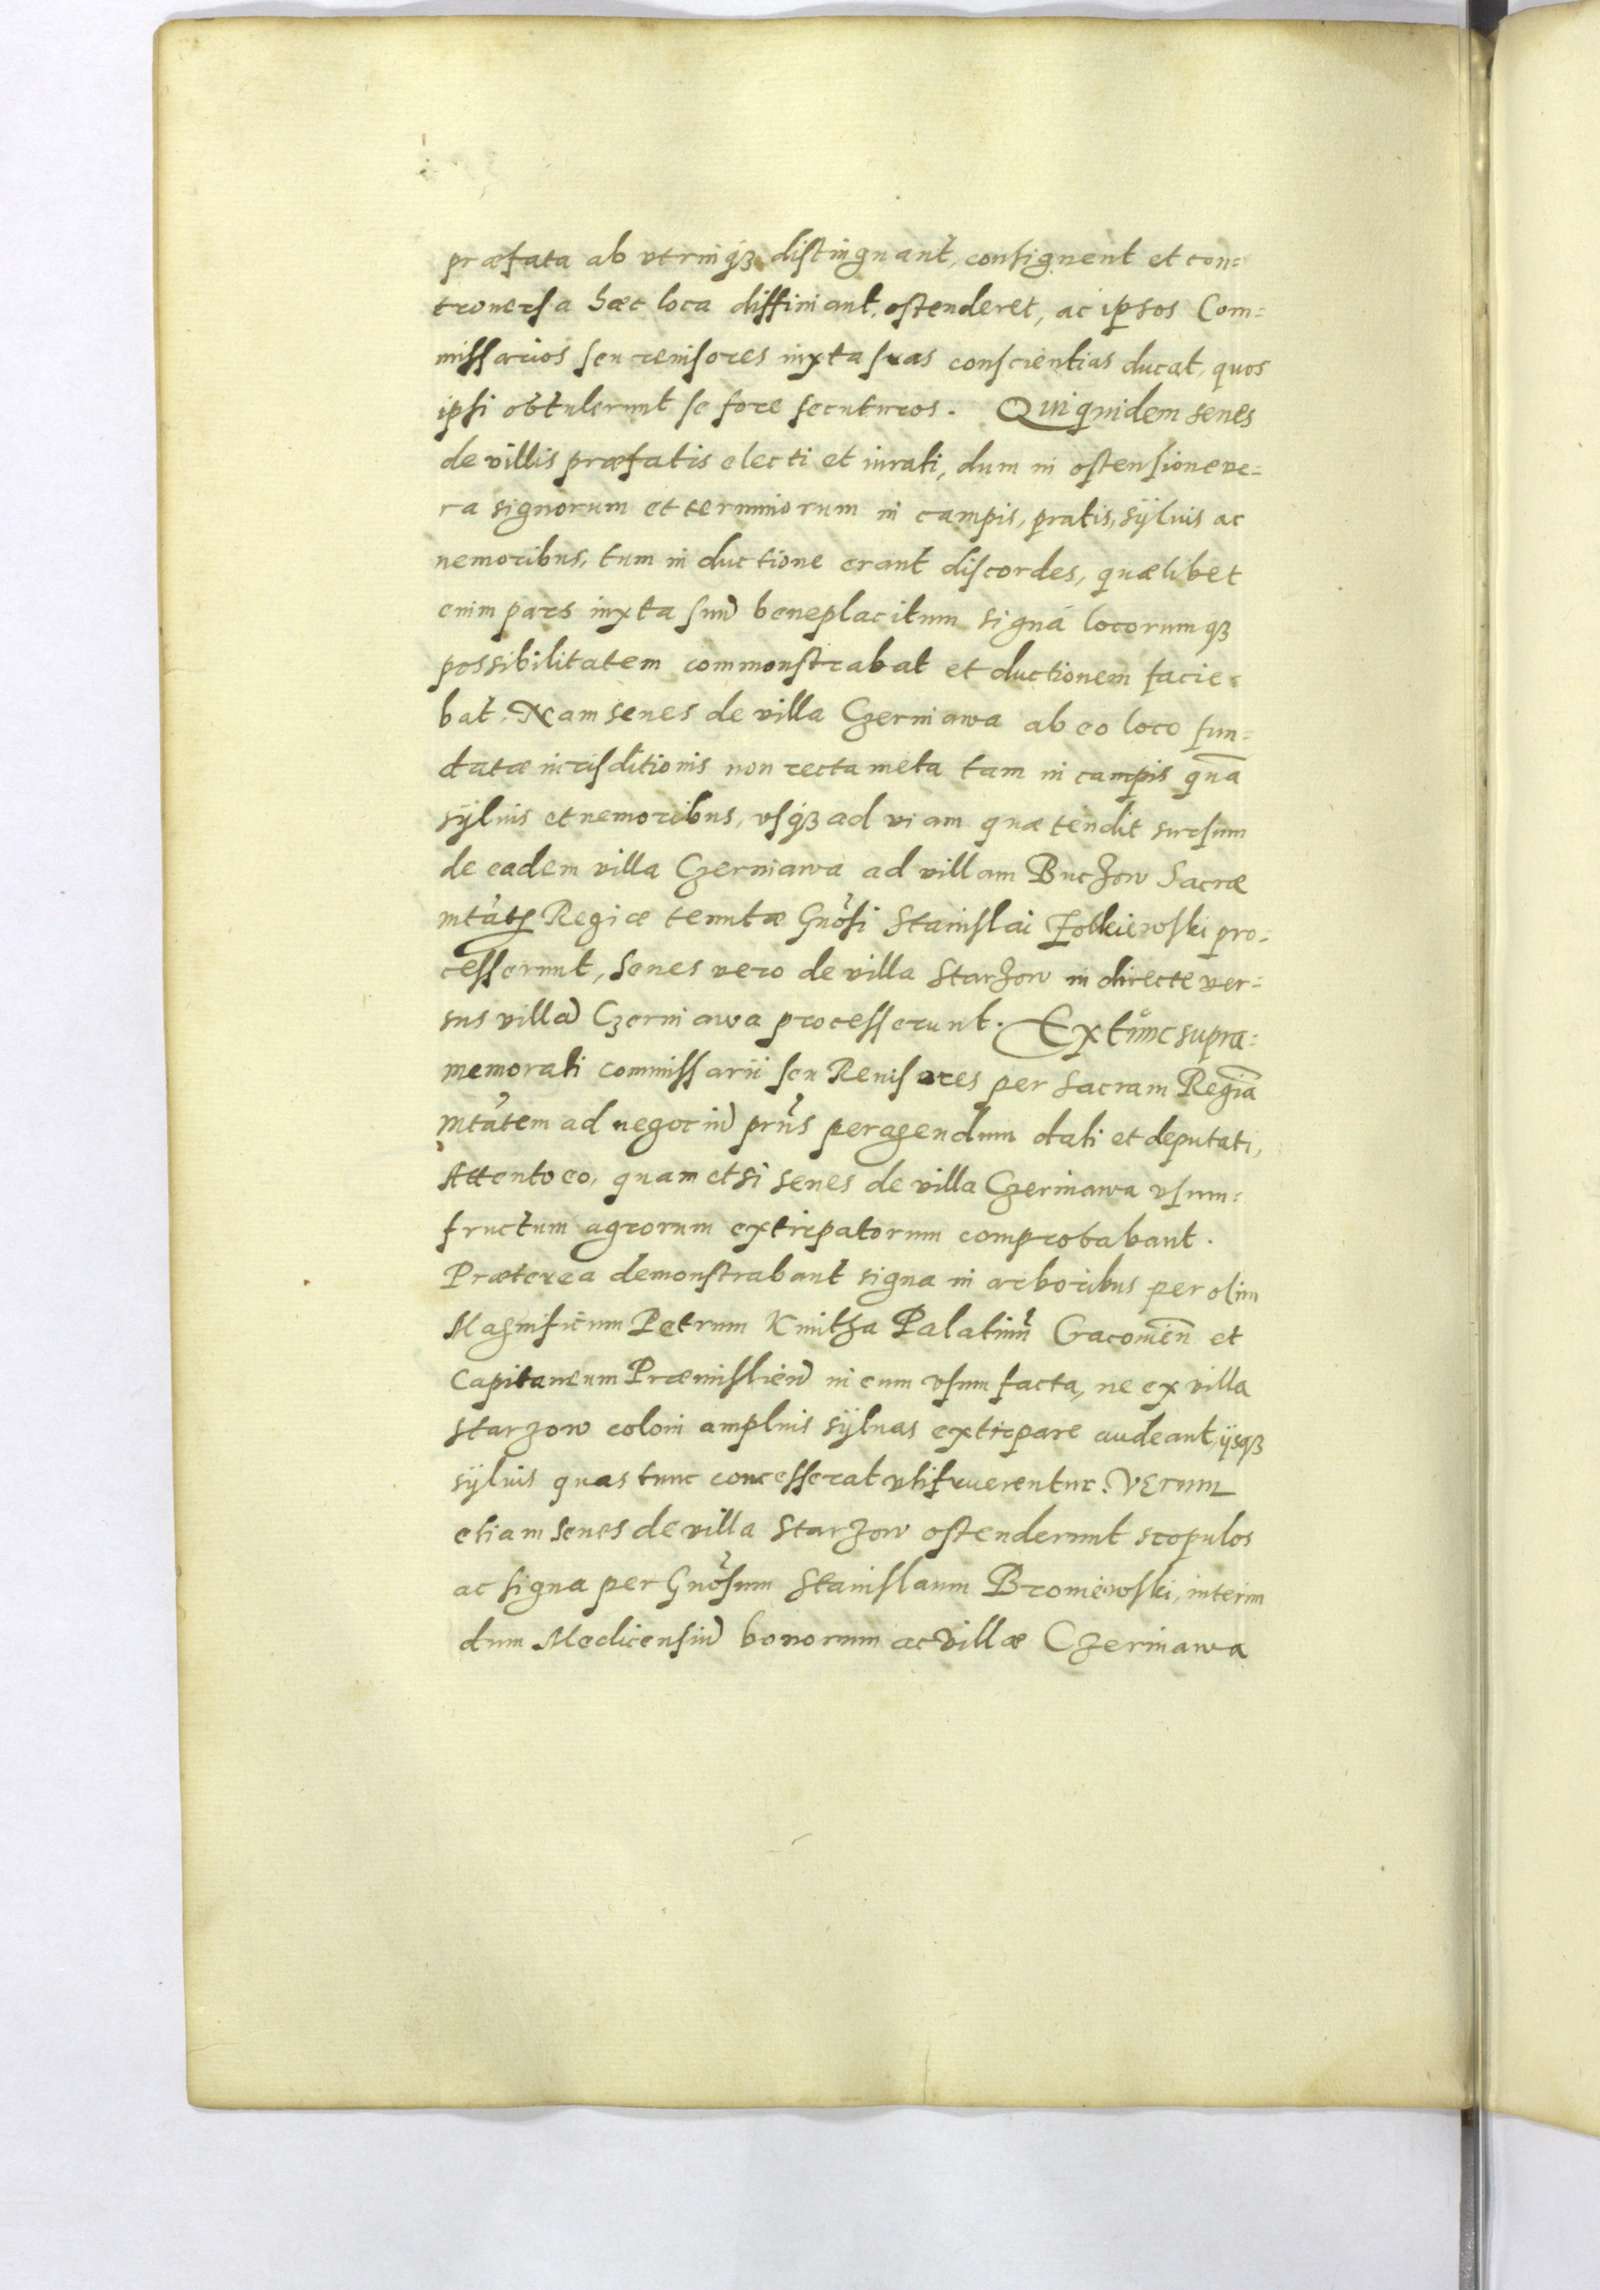 præfata ab vtrinq₃ distinguant, consignent et con=
trouersa hæc loca diffiniant, ostenderet, ac ipsos Com=
missarios seu reuisores iuxta suas conscientias ducat, quos
ipsi obtulerunt se fore secuturos. Qui quidem senes
de villis præfatis electi et iurati, dum in ostensione ve=
ra signorum et terminorum in campis, pratis, sÿluis ac
nemoribus, tum in ductione erant discordes, quælibet
enim pars iuxta suũ beneplacitum signa locorumq₃
possibilitatem commonstrabat et ductionem facie=
bat. Nam senes de villa Czerniawa ab eo loco fun=
datæ iurisditionis non recta meta tam in campis quã
sÿluis et nemoribus, vsq₃ ad viam quæ tendit sursum
de eadem villa Czerniawa ad villam Buczow Sacræ
mtãtis Regiæ tenutæ Gnõsi Stanislai Zolkiewski pro=
cesserunt, senes vero de villa Starzow in directe ver=
sus villã Czerniawa processerunt. Extunc supra=
memorati commissarii seu Reuisores per Sacram Regiã
Mtãtem ad negociũ prñs peragendum dati et deputati,
Attento eo, quam etsi senes de villa Czerniawa vsum=
fructum agrorum extirpatorum comprobabant.
Præterea demonstrabant signa in arboribus per olim
Magnificum Petrum Kmitha Palatinũ Cracouieñ et
Capitaneum Præmislieñ in eum vsum facta, ne ex villa
Starzow coloni amplius sÿluas extirpare audeant, ijsq₃
sÿluis quas tunc concesserat vtifruerentur. Verum
etiam senes de villa Starzow ostenderunt scopulos
ac signa per Gnõsum Stanislaum Broniewski, interim
dum Medicensiũ bonorum ac villæ Czerniawa